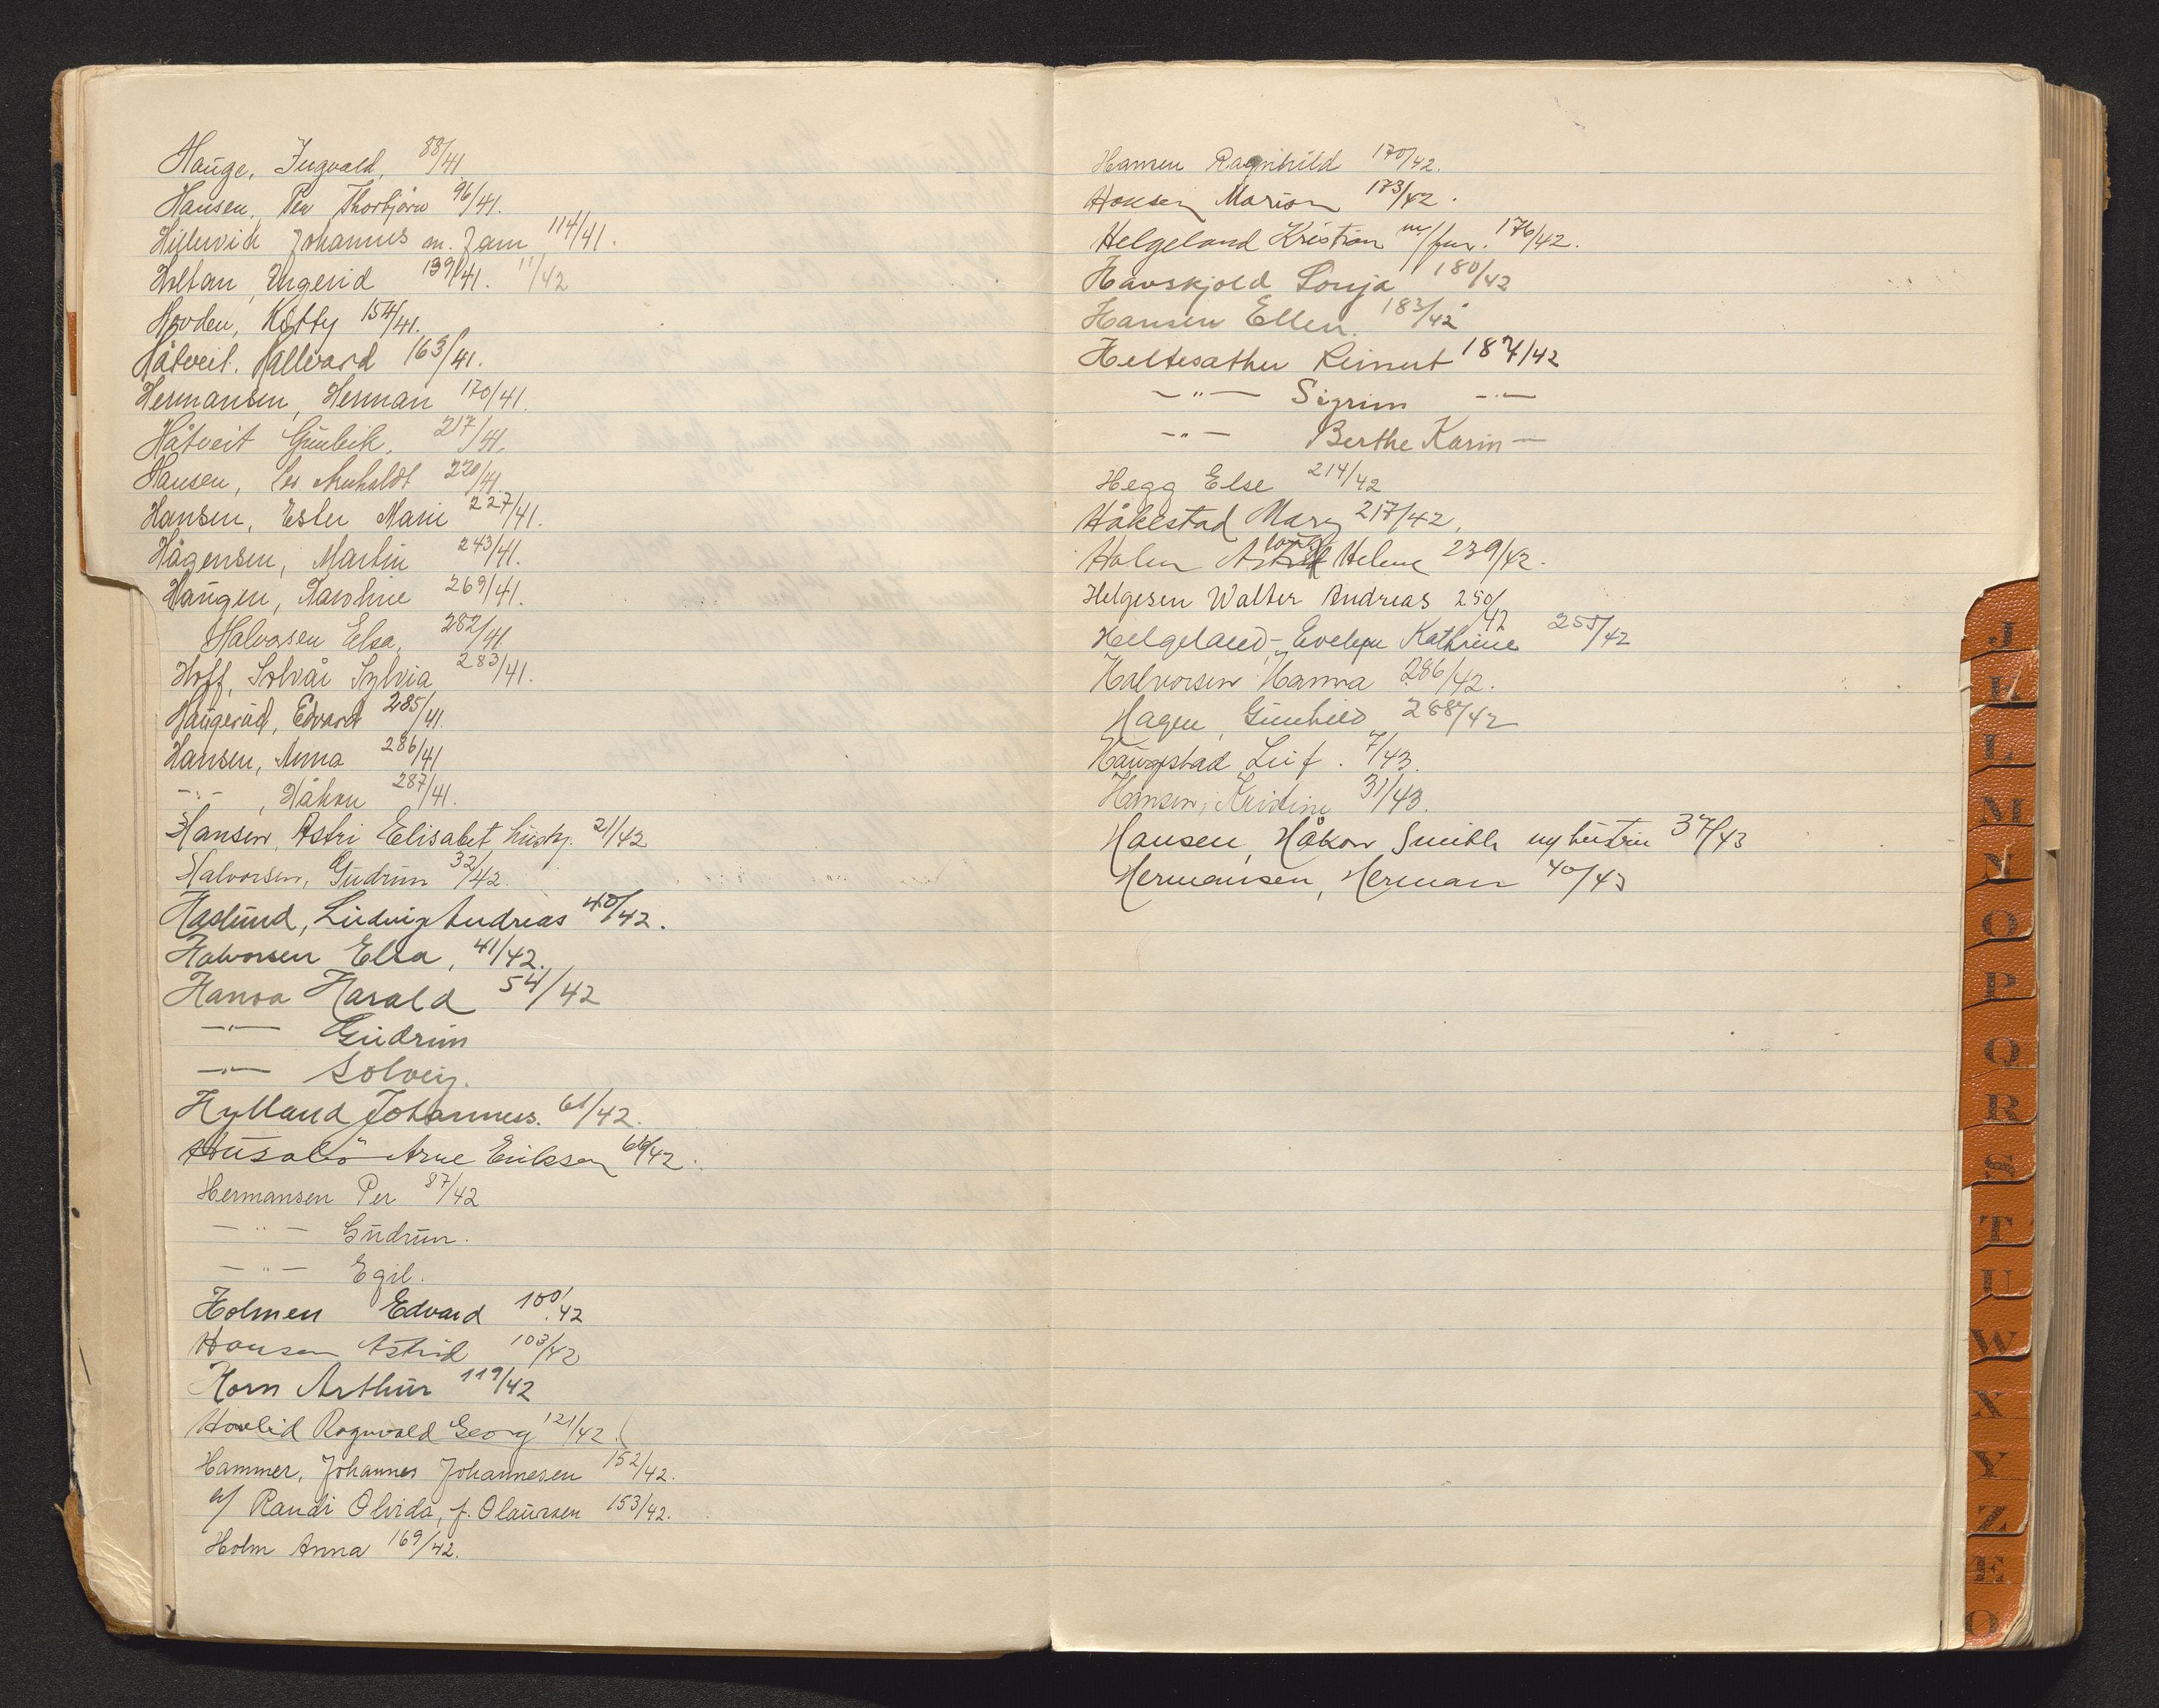 Hauge, Ingvald, 88/41
Hansen, Per Thorbjørn 96/41.
Hillervik Johannes m. fam 114/41.
Holtan, Ingerid 139/41. 11/42
Hovden, Kitty 154/41.
Håtveit. Hallvard 163/41.
Hermansen, Herman 170/41.
Håtveit Gunleik, 217/41.
Hansen, 220/41.
Hansen, Ester Marie 227/41.
Hågensen, Martin 243/41.
Haugen, Karoline 269/41.
Halvorsen Elsa, 282/41
Hoff, Solvår Sylvia 283/41.
Haugerud, Edvard 285/41.
Hansen, Anna 286/41
-"- , Håkon 287/41.
Hansen, Astri Elisabet, hush. 21/42
Halvorsen, Gudrun 32/42.
Haslund, Ludvig Andreas 40/42.
Halvorsen Elsa, 41/42.
Hanoa Harald 54/42
-"- Gudrun
-"- Solveig.
Hylland Johannes. 61/42.
Husabø Arne Eriksen 66/42.
Hermansen Per 87/42
-"- Gudrun.
-"- Egil.
Holmen Edvard 100/42
Hansen Astrid 103/42
Horn Arthur 119/42
Hovlid Ragnvald Georg 121/42.
Hammer, Johannes Johannesen 152/42.
m/ Randi Olvida, f. Olaursen 153/42.
Holm Anna 169/42.
Hansen Ragnhild 170/42.
Hansen Marion 173/42.
Helgeland Kristian m/fru. 176/42.
Havskjold Sonja 180/42
Hansen Ellen. 183/42
Heltesather Reinert 187/42
-"- Sigrun -"-
-"- Berthe Karin -
Hegg Else 214/42
Håkestad Mary 217/42.
Holen Helene 239/42.
Helgesen Walter Andreas 250/42
Helgeland, Evelyn Kathrine 255/42
Halvorsen Hanna 286/42.
Hagen, Gunhild 288/42
Haugstad Leif. 7/43.
Hansen, Kristine 31/43.
Hansen, Håkon Smith og hustru 37/43
Hermansen, Herman 40/43
J
K
L
M
N
O
P
Q
R
S
T
U
W
X
Y
Z
Æ
Ø